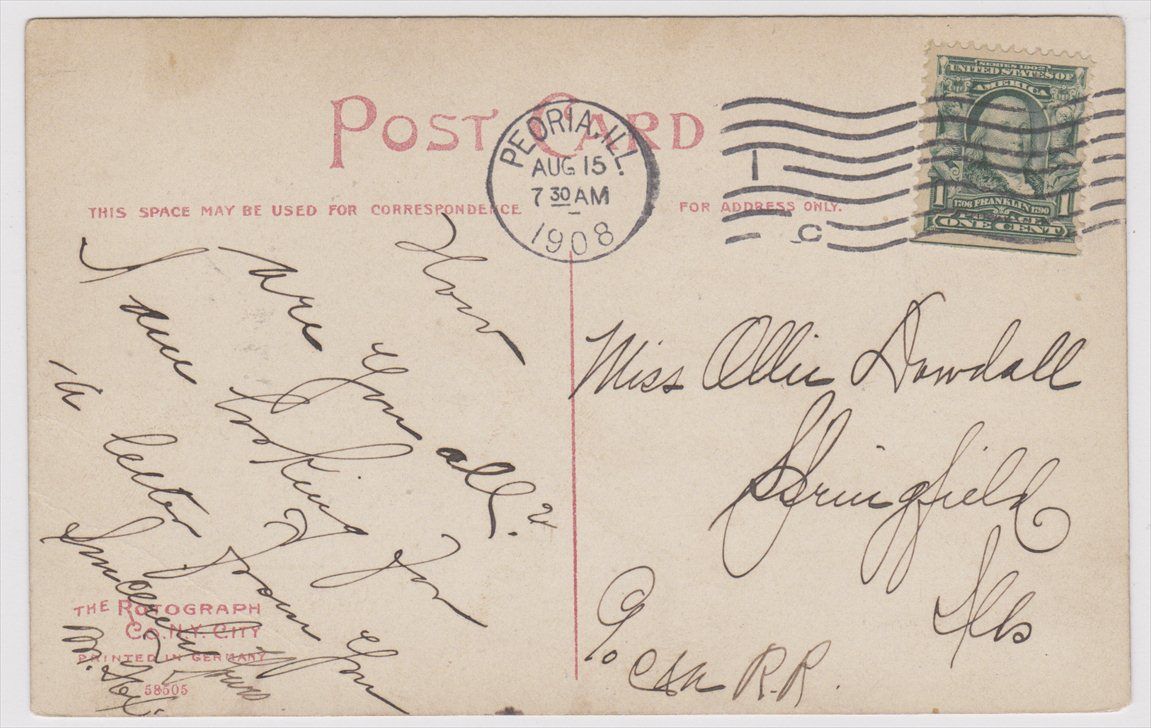 POST CARD
PEORIA, ILL.
AUG 15
7 30 AM
1908
1
C
SERIES 1902
UNITED STATES OF
AMERICA
1 1
1706 FRANKLIN 1790
POSTAGE
ONE CENT
THIS SPACE MAY BE USED FOR CORRESPONDENCE
FOR ADDRESS ONLY.
How
are you all?
I am looking for
a letter from you
Sincerely Yours
Miss Ollie Dowdall
Springfield
Ills
% C&A R.R.
THE ROTOGRAPH
CO. N.Y. CITY
PRINTED IN GERMANY
58505